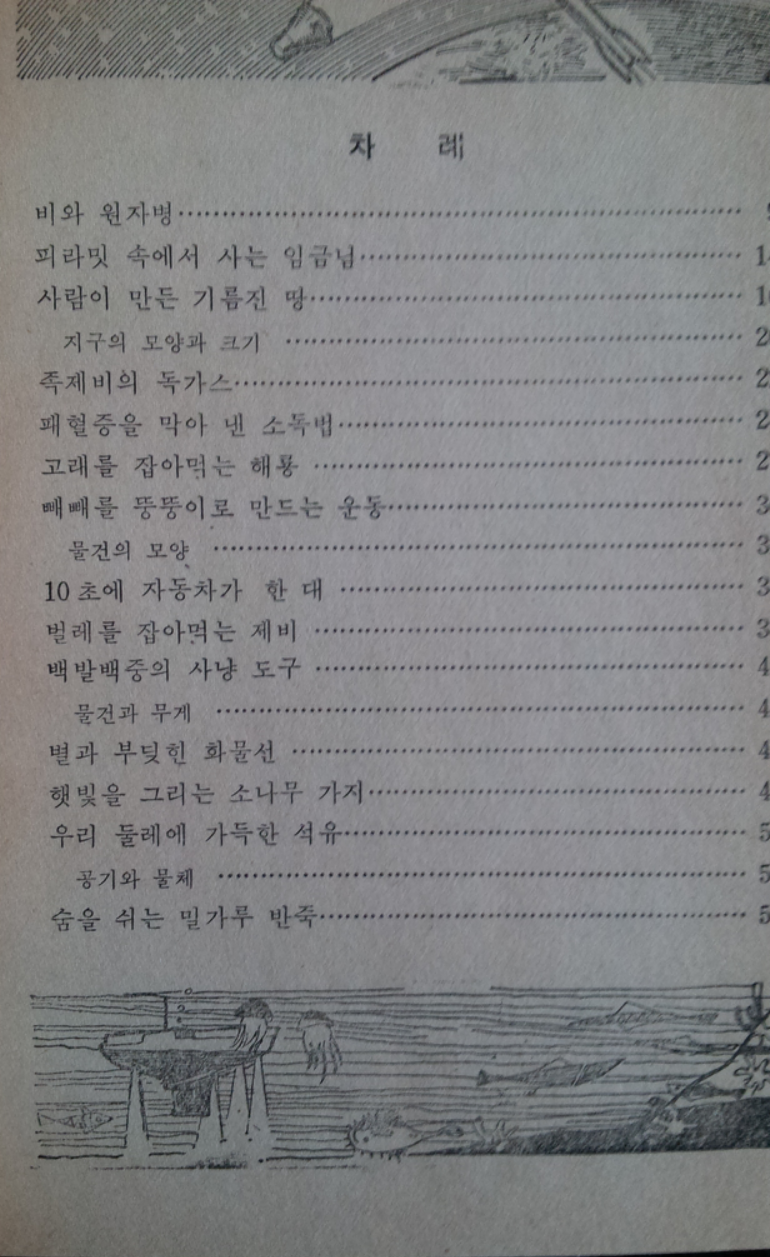 차 례
비와 원자병
피라밋 속에서 사는 임금님
사람이 만든 기름진 땅
지구의 모양과 크기
족제비의 독가스
패혈증을 막아 낸 소독법
고래를 잡아먹는 해룡
빼빼를 뚱뚱이로 만드는 운동
물건의 모양
10초에 자동차가 한 대
벌레를 잡아먹는 제비
백발백중의 사냥 도구
물건과 무게
별과 부딪힌 화물선
햇빛을 그리는 소나무 가지
우리 둘레에 가득한 석유
공기와 물체
숨을 쉬는 밀가루 반죽